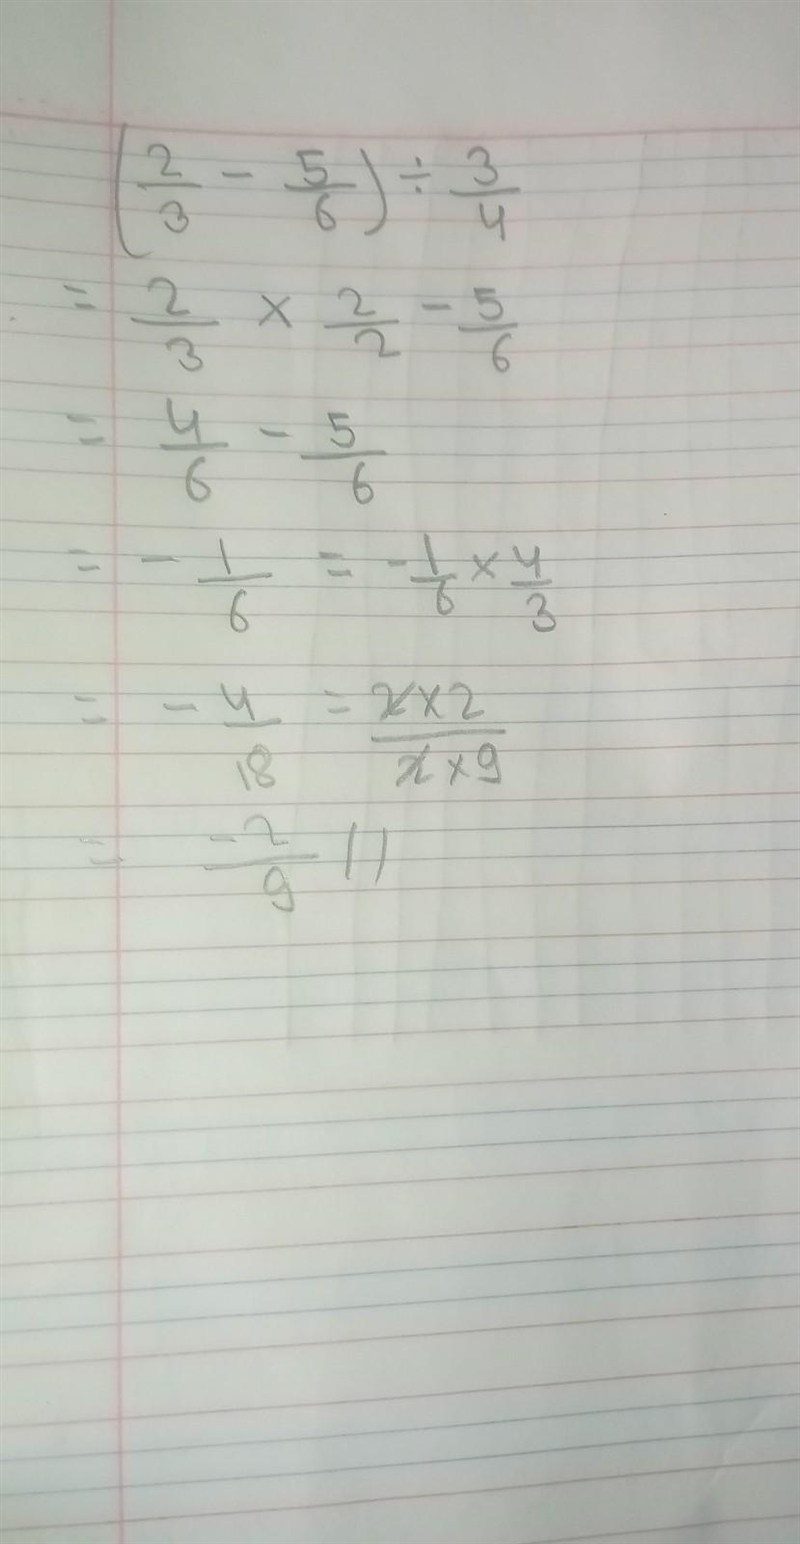 (2/3 - 5/6) ÷ 3/4
= 2/3 × 2/2 - 5/6
= 4/6 - 5/6
= - 1/6 = - 1/6 × 4/3
= - 4/18 = 2 × 2 / 2 × 9
= -2/9 //